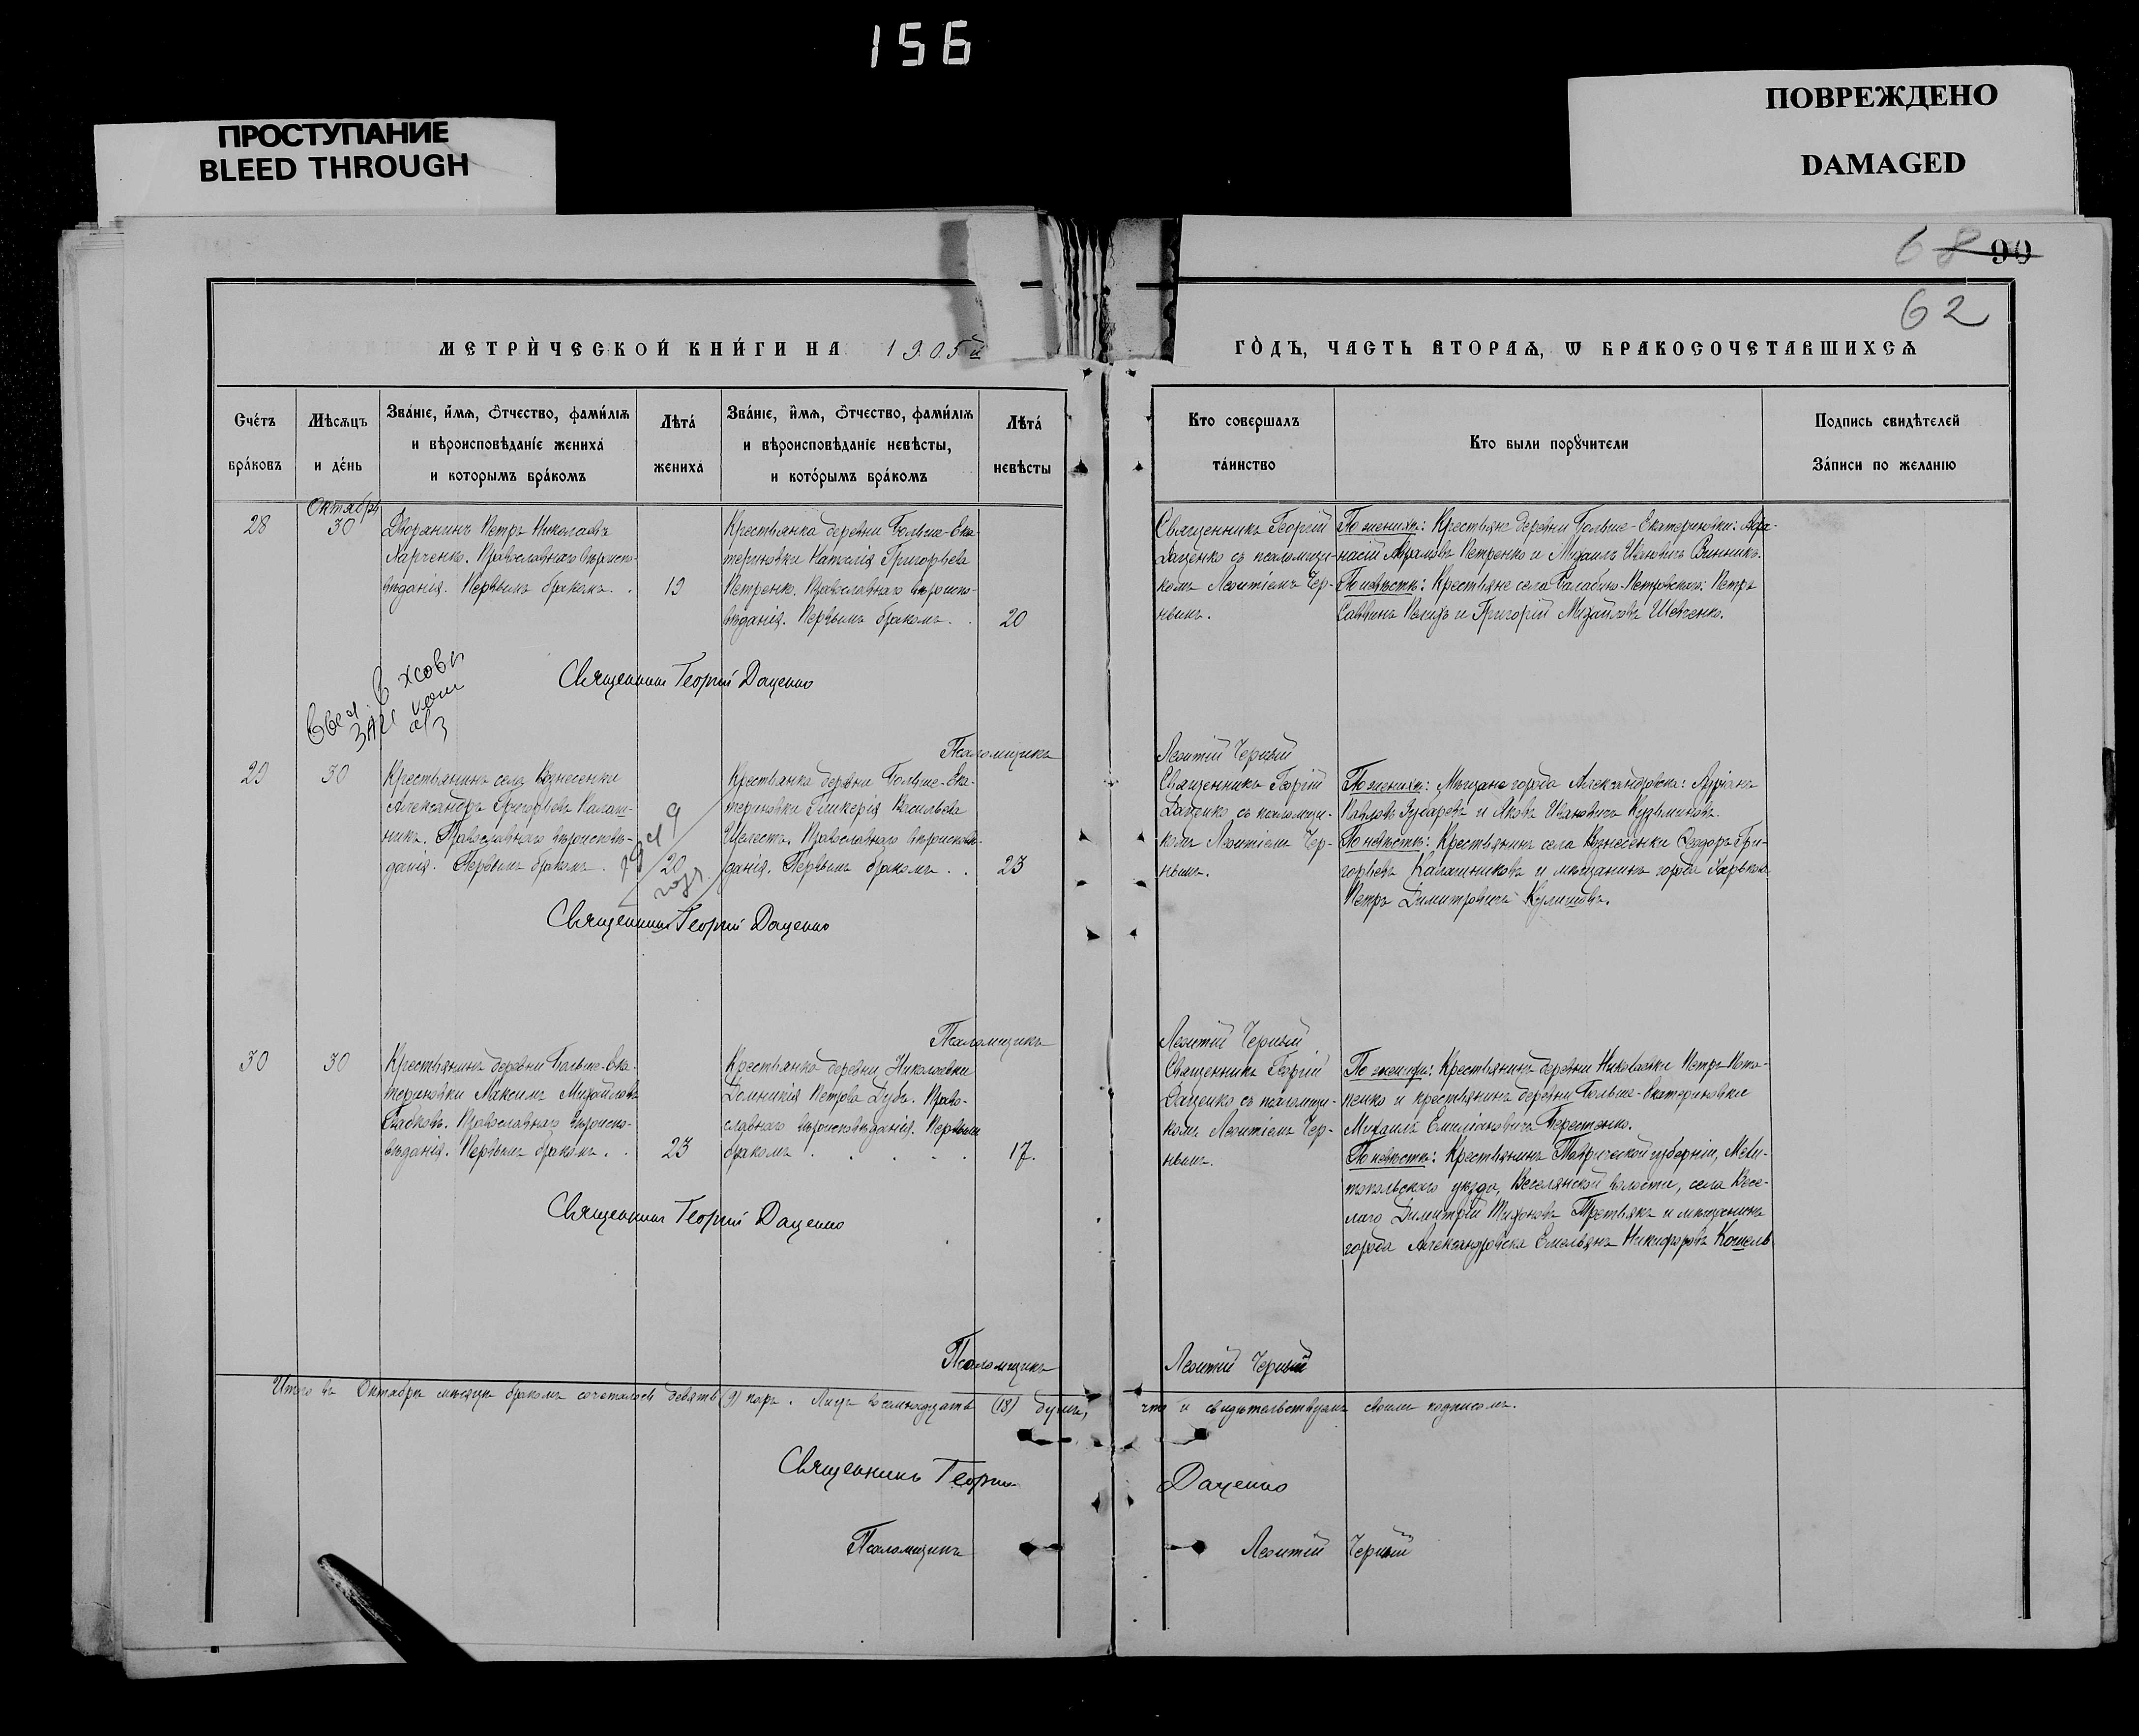 156
ПРОСТУПАНИЕ
BLEED THROUGH
ПОВРЕЖДЕНО
DAMAGED
68 90
62
МЕТРИ́ЧЕСКОЙ КНИ́ГИ НА 1905й
ГО́ДЪ, ЧАСТЬ ВТОРАѦ, Ѡ БРАКОСОЧЕТАВШИХСѦ
Сче́тъ бра́ковъ
Мѣсѧцъ и де́нь
Зва́нїе, и́мѧ, ѻ҆́тчество, фами́лїѧ и вѣроисповѣ́данїе жениха́ и которымъ бра́комъ
Лѣта́ жениха́
Зва́нїе, и́мѧ, ѻ҆́тчество, фами́лїѧ и вѣроисповѣ́данїе невѣ́сты, и кото́рымъ бра́комъ
Лѣта́ невѣ́сты
Кто совершалъ та́инство
Кто были порꙋчители
Подпись свидѣтелей За́писи по желанїю
Октябрь
28
30
Дворянинъ Петръ Николаевъ
Харченко. Православнаго вѣроиспо-
вѣданія. Первымъ бракомъ.
19
Крестьянка деревни Больше-Ека-
териновки Наталія Григорьева
Петренко. Православнаго вѣроиспо-
вѣданія. Первымъ бракомъ.
20
Священникъ Георгій
Даценко съ псаломщи-
комъ Леонтіемъ Чер-
нымъ.
По женихѣ: Крестьяне деревни Больше-Екатериновки: Афа-
насій Петренко и Михаилъ Ивановъ Винникъ.
По невѣстѣ: Крестьяне села Балабино-Петровскаго: Петръ
Саввинъ и Григорій Михайловъ Шевченко.
Священникъ Георгій Даценко
Псаломщикъ
Леонтій Черный
29
30
Крестьянинъ села Вознесенки
Александръ Григорьевъ Калаш-
никъ. Православнаго вѣроисповѣ-
данія. Первымъ бракомъ.
20
Крестьянка деревни Больше-Ека-
териновки Гликерія Васильева
Шелестъ. Православнаго вѣроисповѣ-
данія. Первымъ бракомъ.
23
Священникъ Георгій
Даценко съ псаломщи-
комъ Леонтіемъ Чер-
нымъ.
По женихѣ: Мѣщане города Александровска:
Павловъ и Яковъ Ивановичъ Кузьминовъ.
По невѣстѣ: Крестьянинъ села Вознесенки Ѳеодоръ Гри-
горьевъ Калашниковъ и мѣщанинъ города Харькова
Петръ Димитровичъ
Священникъ Георгій Даценко
Псаломщикъ
Леонтій Черный
30
30
Крестьянинъ деревни Больше-Ека-
териновки Максимъ Михайловъ
Православнаго вѣроиспо-
вѣданія. Первымъ бракомъ.
23
Крестьянка деревни Николаевки
Домникія Петрова Дубъ. Право-
славнаго вѣроисповѣданія. Первымъ
бракомъ
17.
Священникъ Георгій
Даценко съ псаломщи-
комъ Леонтіемъ Чер-
нымъ.
По женихѣ: Крестьянинъ деревни Николаевки Петръ Пота-
пенко и крестьянинъ деревни Больше-Екатериновки
Михаилъ Емиліановичъ
По невѣстѣ: Крестьянинъ Таврической губерніи, Мели-
топольскаго уѣзда, Веселянской волости, села Весе-
лаго Димитрій Тихоновъ Третьякъ и мѣщанинъ
города Александровска Емельянъ Никифоровъ Кошель
Священникъ Георгій Даценко
Псаломщикъ
Леонтій Черный
Итого въ Октябрѣ мѣсяцѣ бракомъ сочеталось девять (9) паръ. Лицъ восемнадцать (18) душъ, что и свидѣтельствуемъ своимъ подписомъ.
Священникъ Георгій Даценко
Псаломщикъ Леонтій Черный